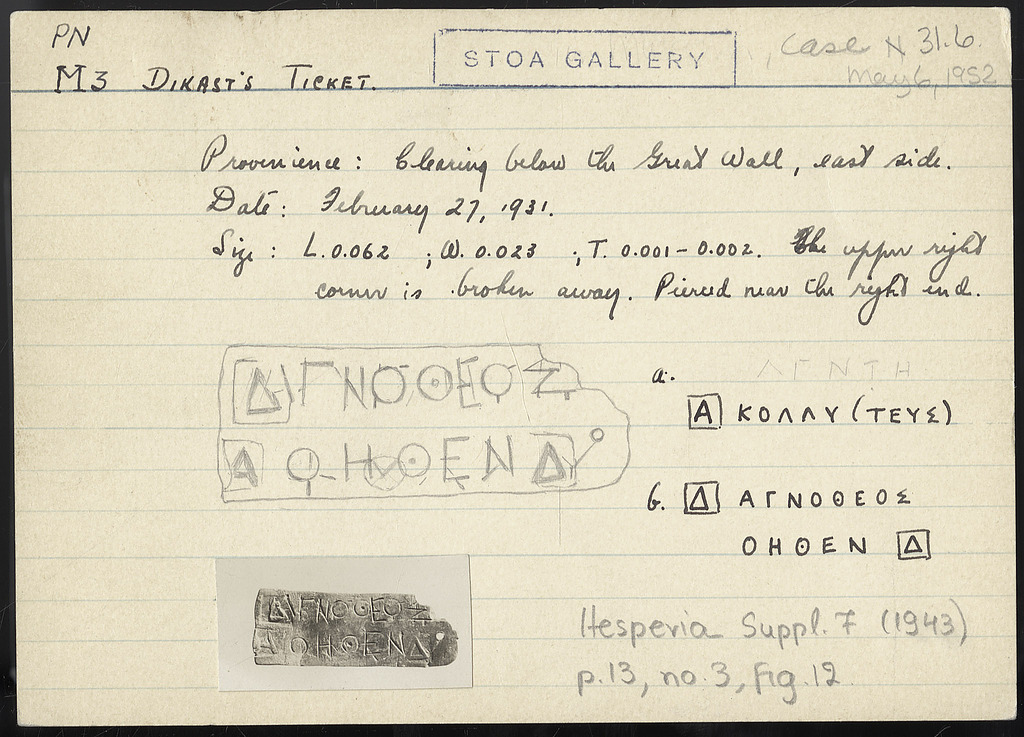 PN
STOA GALLERY
Case N 31.6.
May 6, 1952
M3 DIKAST'S TICKET.
Provenience: Clearing below the Great Wall, east side.
Date: February 27, 1931.
Size: L. 0.062 ; W. 0.023 ; T. 0.001-0.002. The upper right
corner is broken away. Pierced near the right end.
ΔΑΓΝΟΘΕΟΣ
Α ΟΗΘΕΝ Δ
a. ΑΓΝΤΗ
Α ΚΟΛΛΥ(ΤΕΥΣ)
b. Δ ΑΓΝΟΘΕΟΣ
ΟΗΘΕΝ Δ
ΔΑΓΝΟΘΕΟΣ
Α ΟΗΘΕΝ Δ
Hesperia Suppl. 7 (1943)
p.13, no.3, fig.12